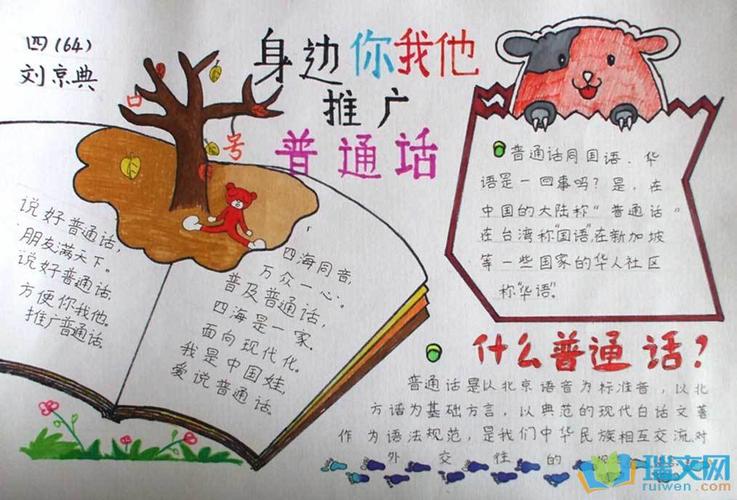 四(64)
刘京典
身边你我他
推广
普通话
口号
说好普通话,
朋友满天下。
说好普通话,
方便你我他。
推广普通话。
四海同音,
万众一心。
普及普通话,
四海是一家。
面向现代化。
我是中国娃,
爱说普通话。
普通话同国语、华
语是一回事吗?是,在
中国的大陆称"普通话"
在台湾称"国语"在新加坡
等一些国家的华人社区
称"华语"。
什么普通话?
普通话是以北京语音为标准音,以北
方话为基础方言,以典范的现代白话文著
作为语法规范,是我们中华民族相互交流对
外交往的
瑞文网
ruiwen.com